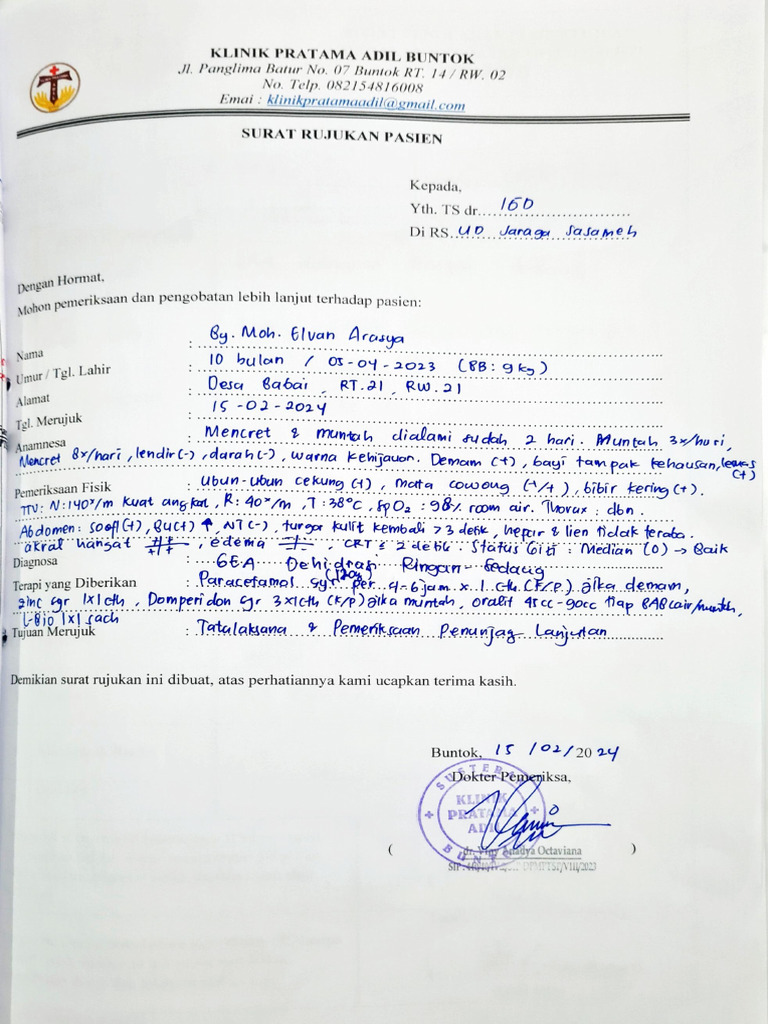 KLINIK PRATAMA ADIL BUNTOK
Jl. Panglima Batur No. 07 Buntok RT. 14 / RW. 02
No. Telp. 082154816008
Emai : klinikpratamaadil@gmail.com
SURAT RUJUKAN PASIEN
Kepada,
Yth. TS dr. IGD
Di RS. UD Jaraga Sasameh
Dengan Hormat,
Mohon pemeriksaan dan pengobatan lebih lanjut terhadap pasien:
Nama : By. Moh. Elvan Arasya
Umur / Tgl. Lahir : 10 bulan / 05-04-2023 (BB: 9 kg)
Alamat : Desa Babai, RT.21, RW.21
Tgl. Merujuk : 15-02-2024
Anamnesa : Mencret & muntah dialami sudah 2 hari. Muntah 3x/hari,
Mencret 8x/hari, lendir (-), darah (-), warna kehijauan. Demam (+), bayi tampak kehausan, lemas (+)
Pemeriksaan Fisik : Ubun-ubun cekung (+), mata cowong (+/+), bibir kering (+).
TTV: N: 140x/m kuat angkat, R: 40x/m, T: 38°C, SpO2: 98% room air. Thorax: dbn.
Abdomen: soefl (+), BU (+) ↑, NT (-), turgor kulit kembali > 3 detik, hepar & lien tidak teraba.
akral hangat +/+ +/+, edema -/- -/-, CRT ≤ 2 detik. Status Gizi: Median (0) → Baik
Diagnosa : GEA Dehidrasi Ringan-Sedang
Terapi yang Diberikan : Paracetamol syr 120mg per 4-6 jam x 1 cth (K/P) jika demam,
zinc syr 1x1 cth, Domperidon syr 3x1cth (K/P) jika muntah, oralit 45cc-90cc tiap BAB cair/muntah,
L-Bio 1x1 sach
Tujuan Merujuk : Tatalaksana & Pemeriksaan Penunjag Lanjutan
Demikian surat rujukan ini dibuat, atas perhatiannya kami ucapkan terima kasih.
Buntok, 15 /02/ 2024
Dokter Pemeriksa,
SUSTERAN
KLINIK
PRATAMA
ADIL
BUNTOK
( Octaviana )